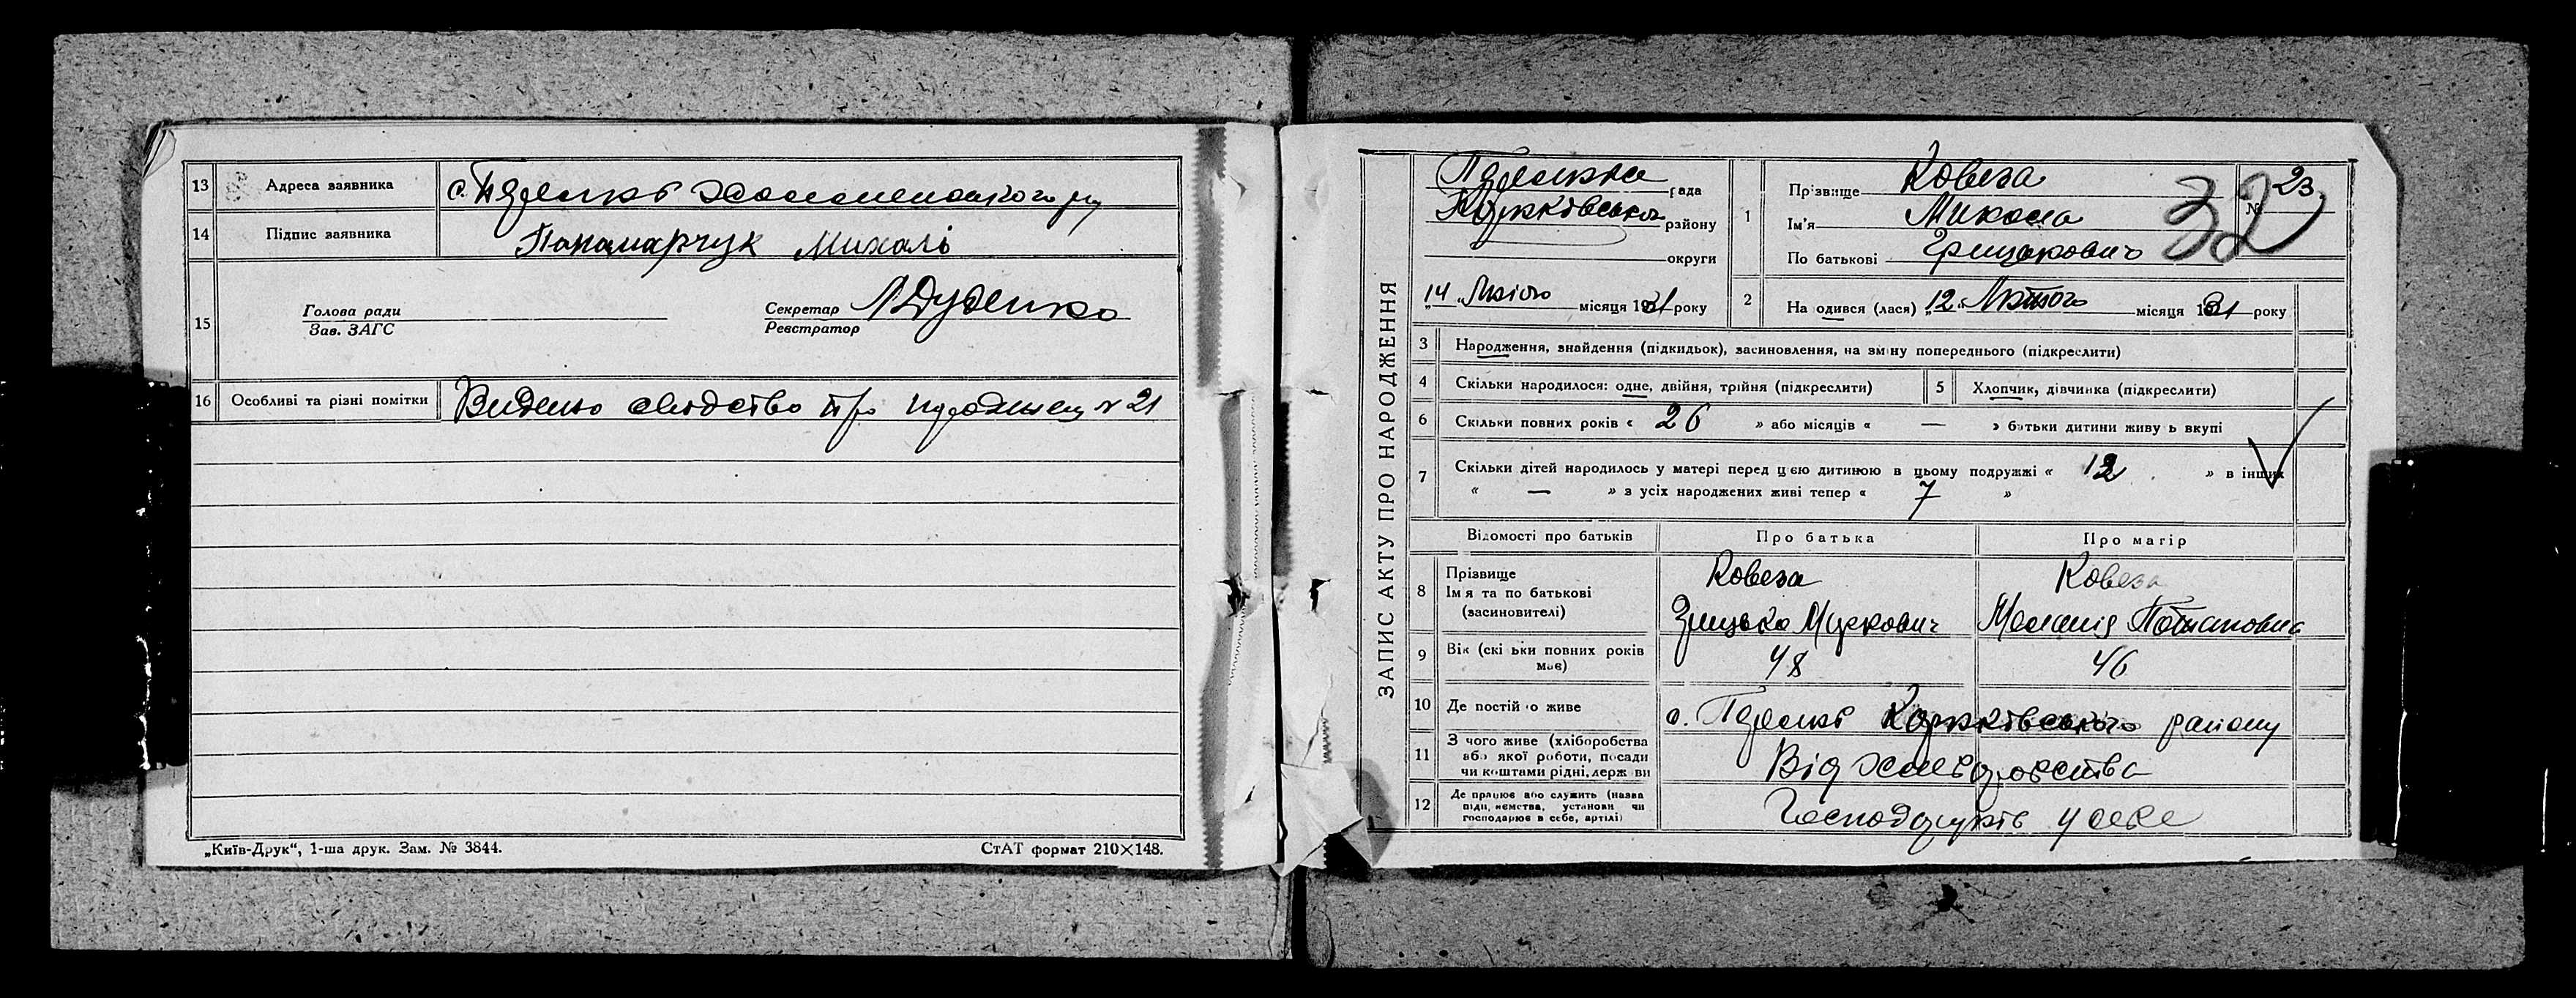 13 Адреса заявника с.
14 Підпис заявника Панамарчук Михалі
15 Голова ради
Зав. ЗАГС
Секретар Дуденко
Реєстратор
16 Особливі та різні помітки Видано свідоство про № 21
„Київ-Друк“, 1-ша друк. Зам. № 3844.
СтАТ формат 210×148.
ЗАПИС АКТУ ПРО НАРОДЖЕННЯ
рада
району
округи
„14 місяця 1931 року
1 Прізвище Ковеза
Ім'я Микола
По батькові Грицькович
№ 23
32
2 На одився (лася) „12 Лютого місяця 1931 року
3 Народження, знайдення (підкидьок), засиновлення, на зміну попереднього (підкреслити)
4 Скільки народилося: одне, двійня, трійня (підкреслити)
5 Хлопчик, дівчинка (підкреслити)
6 Скільки повних років « 26 » або місяців « — » батьки дитини живу ь вкупі
7 Скільки дітей народилось у матері перед цією дитиною в цьому подружжі « 12 » в інших
« — » з усіх народжених живі тепер « 7 »
Відомості про батьків Про батька Про матір
8 Прізвище Ковеза Ковеза
Ім'я та по батькові
(засиновителі) Грицько Маркович Меланія Потаповна
9 Вік (скі ьки повних років має) 48 46
10 Де постій о живе с. району
11 З чого живе (хліборобства
або якої роботи, посади
чи коштами рідні, держ ви Від хліборобства
12 Де працює або служить (назва
підп, иємства, установи чи
господарює в себе, артілі) Господарують у себе